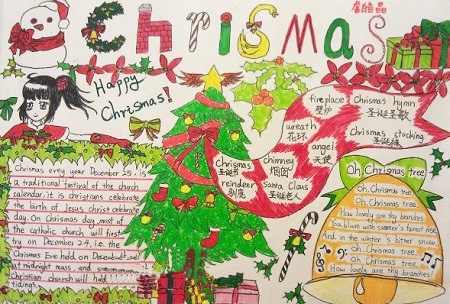 Chrismas
Happy
Chrismas!
fireplace
壁炉
Chrismas hymn
圣诞圣歌
wreath
花环
angel
天使
Chrismas stocking
圣诞袜
Chrismas
圣诞节
reindeer
驯鹿
chimney
烟囱
Santa Claus
圣诞老人
Chrismas evey year December 25, is
a traditional festival of the church
calendar, it is christians celebrate
the birth of Jesus christ celebrate
day. On Chrismas day, most of
the catholic church will first
try on December 24, i.e. the
Chrismas Eve held on December
at midnight mass, and some
Christian church will held
tidings,
Oh Chrismas tree
Oh, Chrismas tree
Oh, Chrismas tree
How lovely are thy branches
in summer's
And in the winter's bitter
Oh, Chrismas tree
Oh, Chrismas tree
How lovely are thy branches!